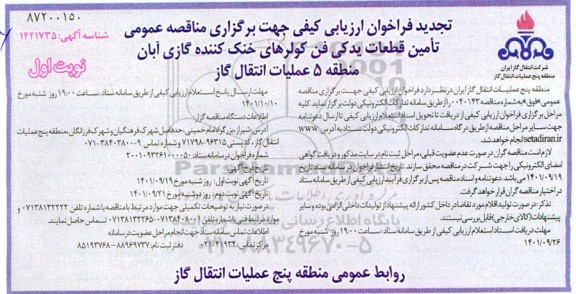 ۸۷۲۰۰۱۵۰
شناسه آگهی: ۱۴۲۱۷۳۵
نوبت اول
تجدید فراخوان ارزیابی کیفی جهت برگزاری مناقصه عمومی
تأمین قطعات یدکی فن کولرهای خنک کننده گازی آبان
منطقه ۵ عملیات انتقال گاز
شرکت انتقال گاز ایران
منطقه پنج عملیات انتقال گاز
منطقه پنج عملیات انتقال گاز ایران در نظر دارد فراخوان ارزیابی کیفی جهت برگزاری مناقصه
عمومی «فوق» به شماره مناقصه ۰۰۴۰۱۴۳ را از طریق سامانه تدارکات الکترونیکی دولت برگزار نماید. کلیه
مراحل برگزاری فراخوان ارزیابی کیفی از دریافت تا تحویل اسناد استعلام ارزیابی کیفی تا ارسال دعوتنامه
جهت سایر مراحل مناقصه از طریق درگاه سامانه تدارکات الکترونیکی دولت ستاد به آدرس www.
setadiran.ir انجام خواهد شد.
لازم است مناقصه گران در صورت عدم عضویت قبلی، مراحل ثبت نام در سایت مذکور و دریافت گواهی
امضای الکترونیکی را جهت شرکت در مناقصه محقق سازند. تاریخ انتشار فراخوان در سامانه ستاد تاریخ
۱۴۰۱/۰۹/۱۹ می باشد. دعوتنامه و اسناد مناقصه پس از برگزاری فرآیند ارزیابی کیفی از طریق سامانه ستاد
در اختیار مناقصه گران قرار خواهد گرفت.
تذکر: در صورت تولید اقلام مورد تقاضا در داخل کشور ارائه پیشنهاد از تولیدات داخلی الزامی بوده و سایر
پیشنهادات (کالای خارجی) قابل بررسی نیستند.
مهلت دریافت اسناد استعلام ارزیابی کیفی از طریق سامانه ستاد: ساعت ۱۹:۰۰ روز شنبه مورخ
۱۴۰۱/۰۹/۲۶
مهلت ارسال پاسخ استعلام ارزیابی کیفی از طریق سامانه ستاد: ساعت ۱۹:۰۰ روز شنبه مورخ
۱۴۰۱/۱۰/۱۰
اطلاعات دستگاه مناقصه گزار:
آدرس: شیراز، بزرگراه امام خمینی، حد فاصل شهرک فرهنگیان و شهرک فرزانگان، منطقه پنج عملیات
انتقال گاز، کد پستی ۹۶۳۱۵-۷۱۷۹۸ و شماره تماس ۹-۳۸۴۰۳۸۰۰-۰۷۱
شماره فراخوان در سامانه ستاد:
تاریخ آگهی نوبت اول: روز شنبه مورخ ۱۴۰۱/۰۹/۱۹
تاریخ آگهی نوبت دوم: روز دوشنبه مورخ ۱۴۰۱/۰۹/۲۱
در صورت نیاز به توضیحات تکمیلی جهت موارد مرتبط با مناقصه با شماره تلفن ۰۷۱۳۸۱۳۲۲۲۲ و
موارد مرتبط فنی با شماره تلفن تماس حاصل نمایند.
اطلاعات تماس سامانه ستاد جهت انجام مراحل عضویت در سامانه
مرکز تماس: ۴۱۹۳۴-۰۲۱ دفتر ثبت نام: ۸۸۹۶۹۷۳۷-۸۵۱۹۳۷۶۸
روابط عمومی منطقه پنج عملیات انتقال گاز
ParsNamadData
پایگاه اطلاع رسانی
۰۲۱-۸۸۳۴۹۶۷۰-۵